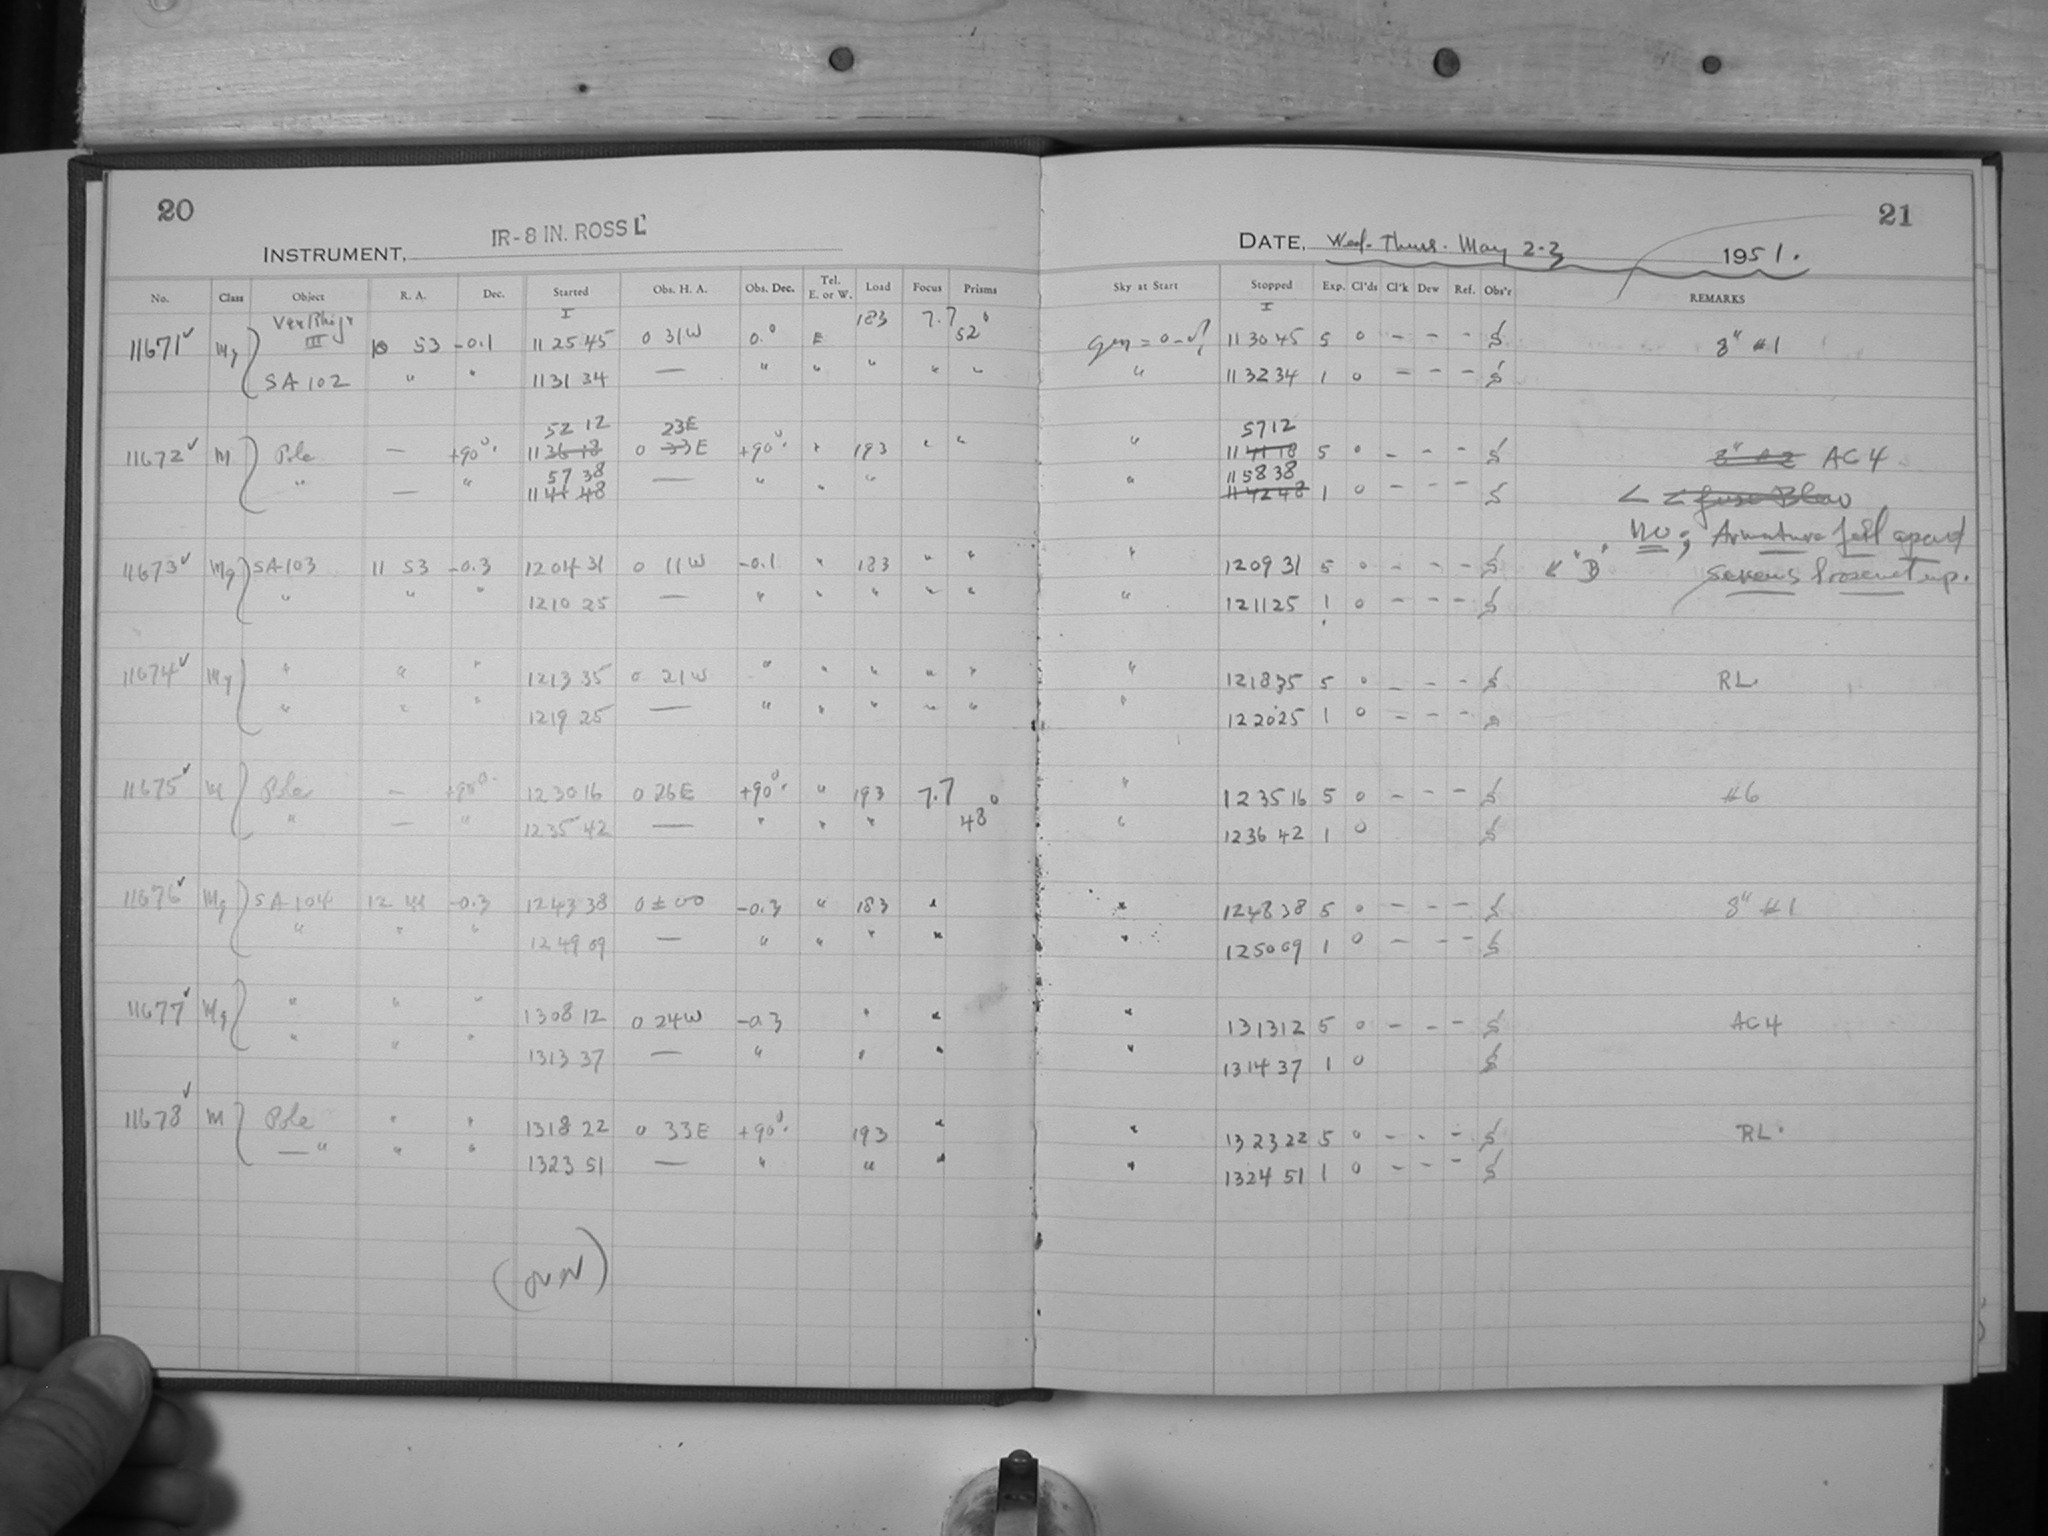 20
IR-8 IN. ROSS L
INSTRUMENT,
No. Class Object R. A. Dec. Started Obs. H. A. Obs. Dec. Tel. E. or W. Load Focus Prisms
I
III
11671 Mg 10 53 -0.1 11 25 45 0 31W 0.° E 183 7.7 52°
SA 102 " " 11 31 34 — " " " " "
52 12 23E
11672 M Pole — +90° 11 36 18 0 33E +90° " 193 " "
57 38
" — " 11 41 48 — " " "
11673 Mg SA103 11 53 -0.3 12 04 31 0 11W -0.1 " 183 " "
" " " 12 10 25 — " " " " "
11674 Mg " " " 12 13 35 0 21W " " " " "
" " " 12 19 25 — " " " " "
11675 M Pole — +90° 12 30 16 0 26E +90° " 193 7.7 48°
" — " 12 35 42 — " " "
11676 Mg SA 104 12 -0.3 12 43 38 0 ± 00 -0.3 " 183 "
" " " 12 49 09 — " " " "
11677 Mg " " " 13 08 12 0 24W -0.3 " "
" " " 13 13 37 — " " "
11678 M Pole " " 13 18 22 0 33E +90° 193 "
— " " " 13 23 51 — " " "
(over)
21
DATE, Wed. Thurs. May 2-3 1951.
Sky at Start Stopped Exp. Cl'ds Cl'k Dew Ref. Obs'r REMARKS
I
11 30 45 5 0 - - - S 8" #1
" 11 32 34 1 0 - - - S
57 12
" 11 41 18 5 0 - - - S 8" #2 AC4
11 58 38
" 11 42 48 1 0 - - - S < < fuse Blew
NO; Armature fell apart
" 12 09 31 5 0 - - - S "B" screws loosened up.
" 12 11 25 1 0 - - - S
" 12 18 35 5 0 - - - S RL
" 12 20 25 1 0 - - - S
" 12 35 16 5 0 - - - S #6
" 12 36 42 1 0 S
" 12 48 38 5 0 - - - S 8" #1
" 12 50 09 1 0 - - - S
" 13 13 12 5 0 - - - S AC4
" 13 14 37 1 0 S
" 13 23 22 5 0 - - - S RL
" 13 24 51 1 0 - - - S